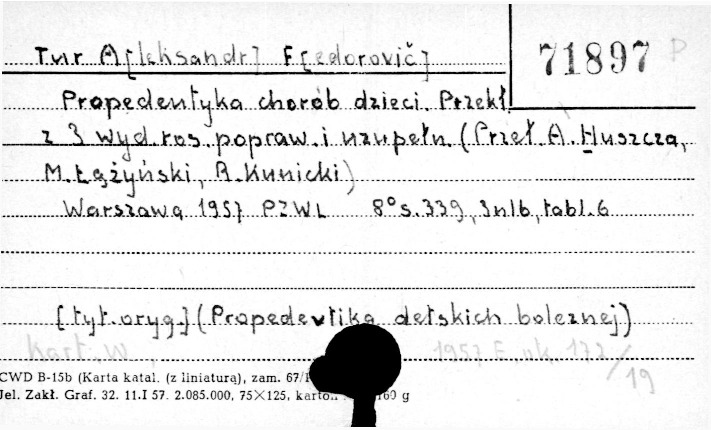 Tur A[leksandr] F[edorovič]
71897 P
Propedeutyka chorób dzieci. Przekł.
z 3 wyd. ros. popraw. i uzupełn. (Przeł. A. Huszcza,
M. Łążyński, R. Kunicki)
Warszawa 1957 PZWL 8° s. 339, 3 nlb, tabl. 6
[tyt. oryg.] (Propedevtika detskich boleznej)
kart. W 1957 E. uk. 172/19
CWD B-15b (Karta katal. (z liniaturą), zam. 67/
Jel. Zakł. Graf. 32. 11.I 57. 2.085.000, 75×125, karton 160 g